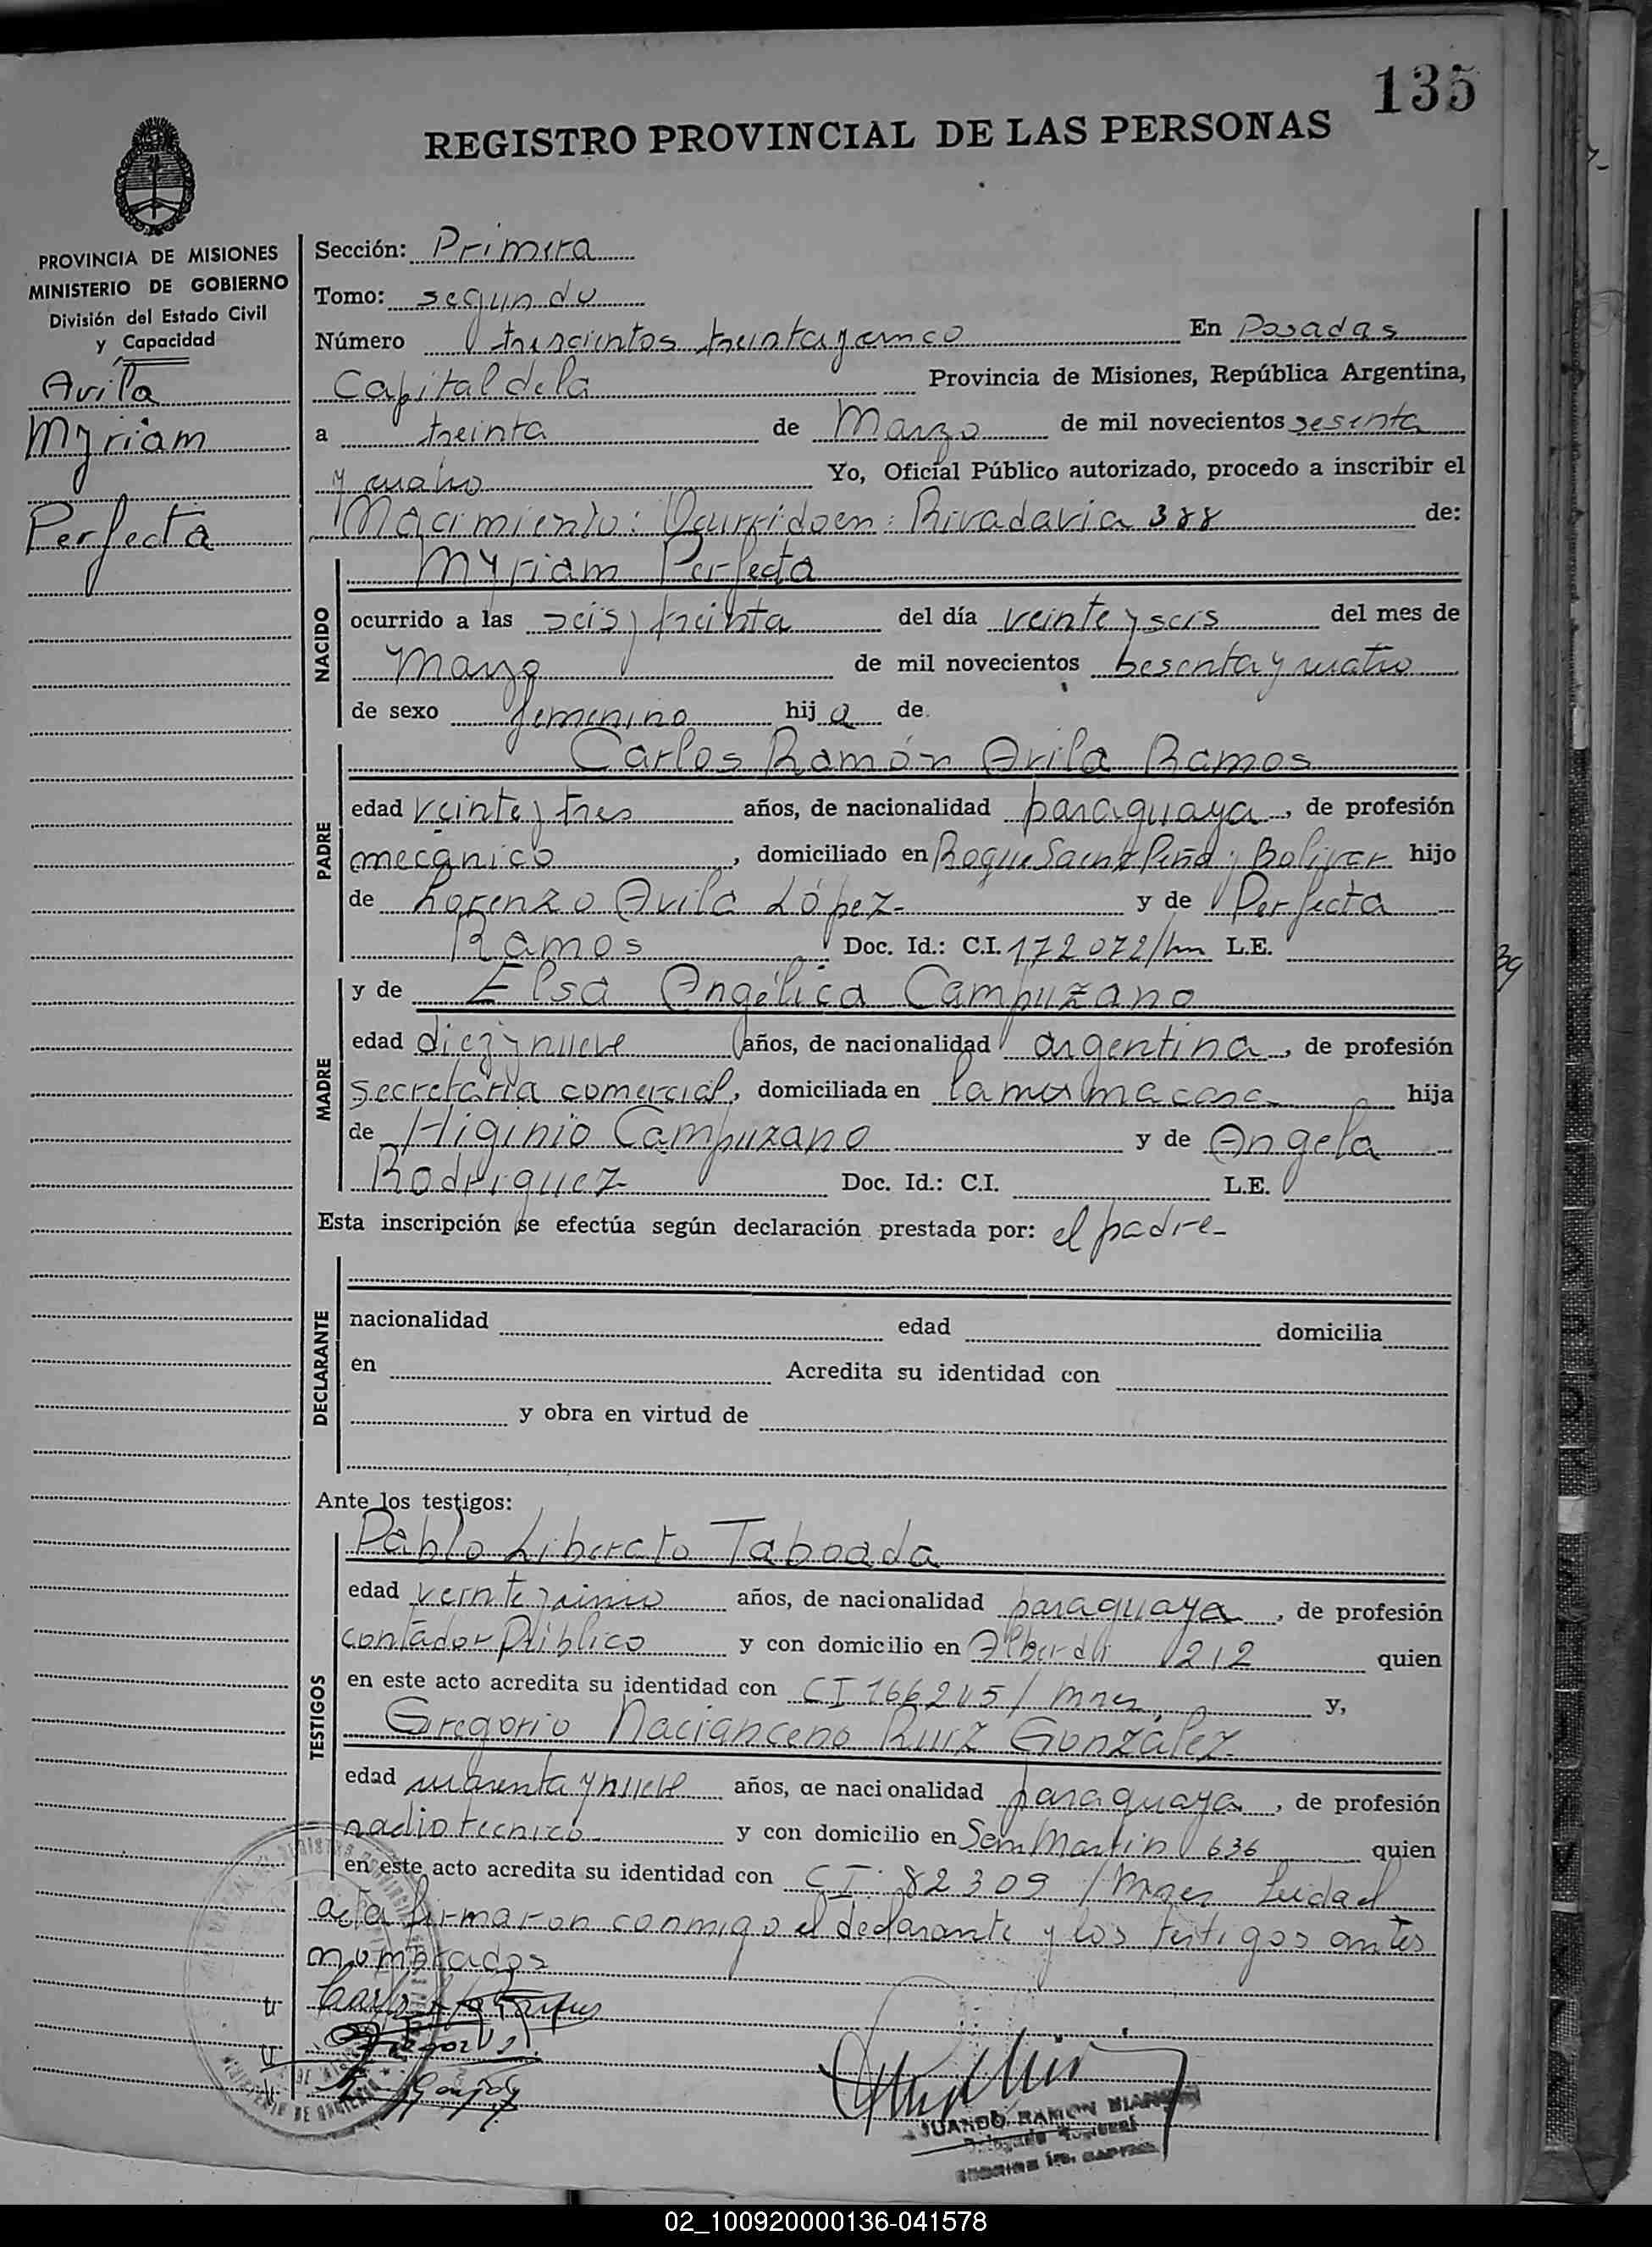 135
REGISTRO PROVINCIAL DE LAS PERSONAS
PROVINCIA DE MISIONES
MINISTERIO DE GOBIERNO
División del Estado Civil
y Capacidad
Avila
Myriam
Perfecta
Sección: Primera
Tomo: segundo
Número trescientos treinta y cinco En Posadas
Capital de la Provincia de Misiones, República Argentina,
a treinta de Marzo de mil novecientos sesenta
y cuatro Yo, Oficial Público autorizado, procedo a inscribir el
Nacimiento: Ocurrido en: Rivadavia 388 de:
NACIDO
Myriam Perfecta
ocurrido a las seis y treinta del día veinte y seis del mes de
marzo de mil novecientos sesenta y cuatro
de sexo femenino hij a de
PADRE
Carlos Ramón Avila Ramos
edad veinte y tres años, de nacionalidad paraguaya, de profesión
mecánico, domiciliado en Roque Saenz Peña y Bolivar hijo
de Lorenzo Avila López y de Perfecta
Ramos Doc. Id.: C.I. 172072/ L.E.
MADRE
y de Elsa Angélica Campuzano
edad diez y nueve años, de nacionalidad argentina, de profesión
secretaria comercial, domiciliada en la misma casa hija
de Higinio Campuzano y de Angela
Rodriguez Doc. Id.: C.I. L.E.
Esta inscripción se efectúa según declaración prestada por: el padre
DECLARANTE
nacionalidad edad domicilia
en Acredita su identidad con
y obra en virtud de
Ante los testigos:
TESTIGOS
Pablo Liberato Taboada
edad veinte y años, de nacionalidad paraguaya, de profesión
contador Público y con domicilio en Alberdi 212 quien
en este acto acredita su identidad con CI 166245/Mnes, y,
Gregorio Nacianceno Ruiz González
edad cuarenta y nueve años, de nacionalidad paraguaya, de profesión
radiotecnico y con domicilio en San Martin 636 quien
en este acto acredita su identidad con CI. 82309/Mnes Leida el
acta firmaron conmigo el declarante y los testigos antes
nombrados
RAMON
02_100920000136-041578